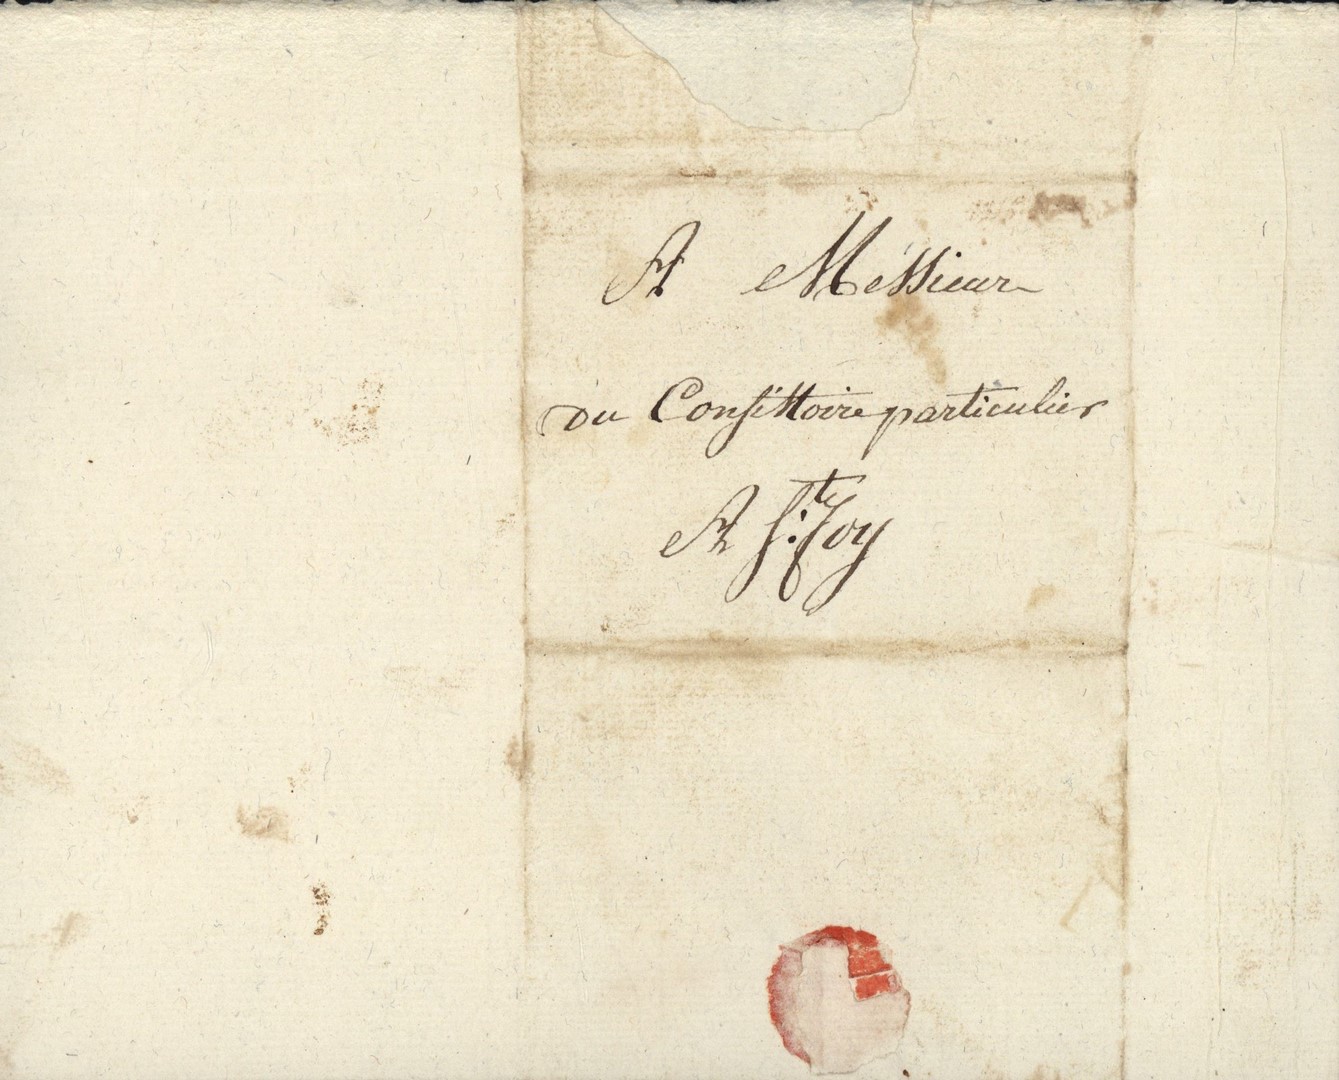 A Méssieur
du Consistoire particulier
A S:t foy